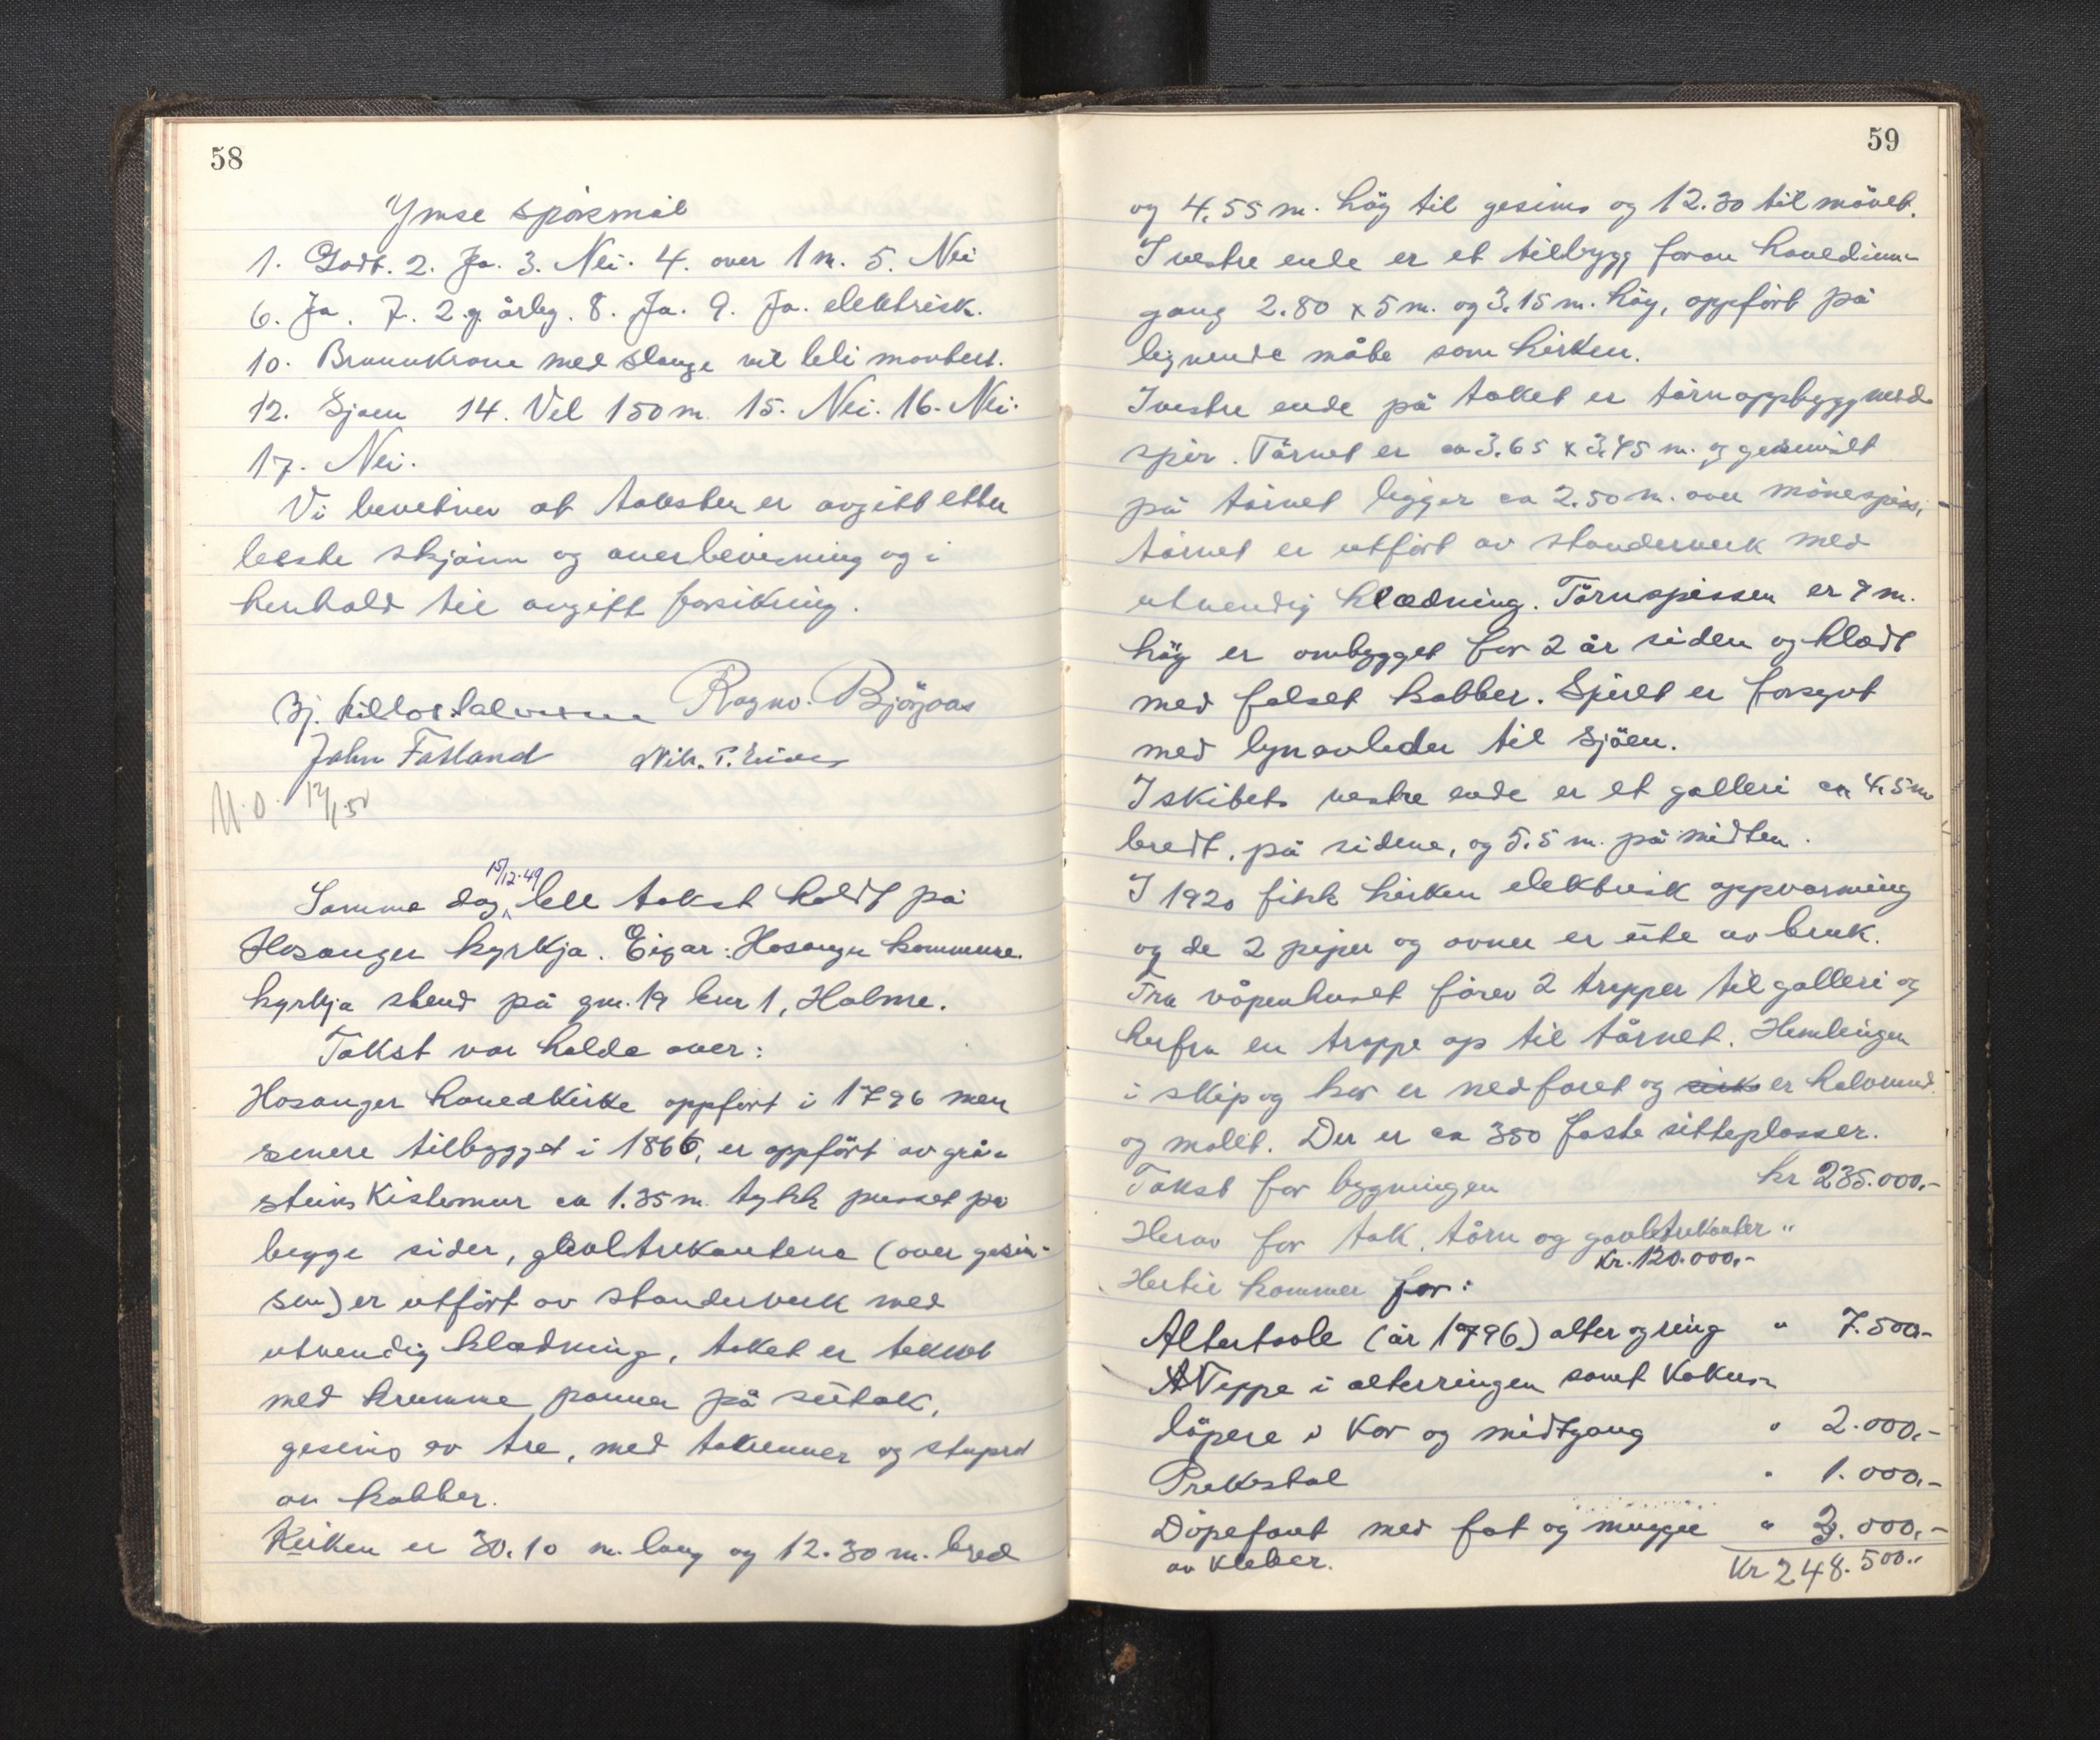 58
Ymse spörsmål
1. Godt. 2. Ja. 3. Nei. 4. over 1 m. 5. Nei
6. Ja. 7. 2.g. årleg. 8. Ja. 9. Ja. elektrisk.
10. Brannkrane med slange vil bli montert.
12. Sjøen 14. Vel 150 m. 15. Nei. 16. Nei.
17. Nei.
Vi bevitner at taksten er avgitt etter
beste skjönn og overbevisning og i
henhold til avgitt forsikring.
Bj. Ragnv. Björgaas
John Fatland Nils. T.
M.O. 12/1.50
Samme dag 15/12-49 ble takst holdt på
Hosanger kyrkja. Eigar: Hosanger kommune.
kyrkja stend på gnr. 19 bnr 1, Holme.
Takst var holde over:
Hosanger hovedkirke oppfört i 1796 men
senere tilbygget i 1866, er oppfört av grå-
steins Kistemur ca 1.35 m. tykk pusset på
begge sider, gavltrekantene (over gesim-
sen) er utfört av standerverk med
utvendig klædning, taket er tekket
med krumme panner på sutak,
gesims av tre, med takrenner og stuprör
av kobber.
Kirken er 30.10 m. lang og 12.30 m. bred
59
og 4.55 m. höy til gesims og 12.30 til mönet.
I vestre ende er et tilbygg foran hovedinn-
gang 2.80 x 5 m. og 3.15 m. höy, oppfört på
lignende måte som kirken.
I vestre ende på taket er tårnoppbygg med
spir. Tårnet er ca 3.65 x 3.45 m. og
på tårnet ligger ca 2.50 m. over
tårnet er utfört av standerverk med
utvendig klædning. Tårnspissen er 7 m.
höy er ombygget for 2 år siden og klædt
med falset kobber. Spiret er forsynt
med lynavleder til Sjöen.
I skibets vestre ende er et galleri ca 4.5 m
bredt, på sidene, og 5.5 m. på midten.
I 1920 fikk kirken elektrisk oppvarming
og de 2 piper og ovner er ute av bruk.
Fra våpenhuset förer 2 trapper til galleri og
herfra en trappe op til tårnet. Hemlingen
i skip og kor er nedforet og er halvrund
og malt. Der er ca 350 faste sitteplasser.
Takst for bygningen kr 235.000.-
Herav for tak, tårn og gavltrekanter "
Kr. 120.000.-
Hertil kommer for:
Altertavle (år 1796) alter og ring " 7.500.-
Teppe i alterringen samt Kokus-
löpere i Kor og midtgang " 2.000.-
Prekestol " 1.000.-
Döpefont med fat og mugge " 3.000.-
av Kleber. Kr 248.500.-